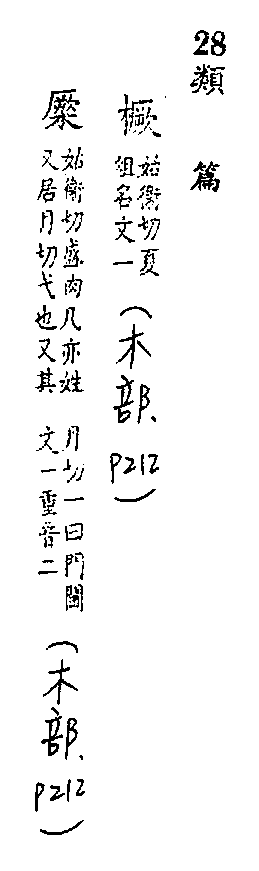 28類篇
橛 姑衞切夏
俎名文一 (木部、P212)
橜 姑衞切盛肉几亦姓
又居月切弋也又其
月切一曰門閫
文一重音二 (木部、P212)